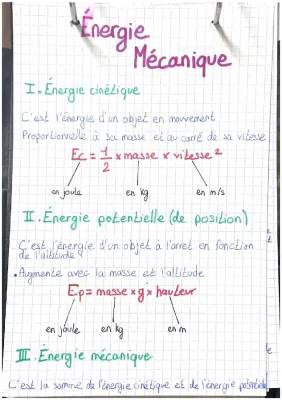 Énergie
Mécanique
I. Énergie cinétique
C'est l'énergie d'un objet en mouvement
Proportionnelle à sa masse et au carré de sa vitesse
Ec = 1/2 x masse x vitesse²
en joule en kg en m/s
II. Énergie potentielle (de position)
C'est l'énergie d'un objet à l'arret en fonction
de l'altitude
• Augmente avec la masse et l'altitude
Ep = masse x g x hauteur
en joule en kg en m
III. Énergie mécanique
C'est la somme de l'énergie cinétique et de l'énergie potentielle